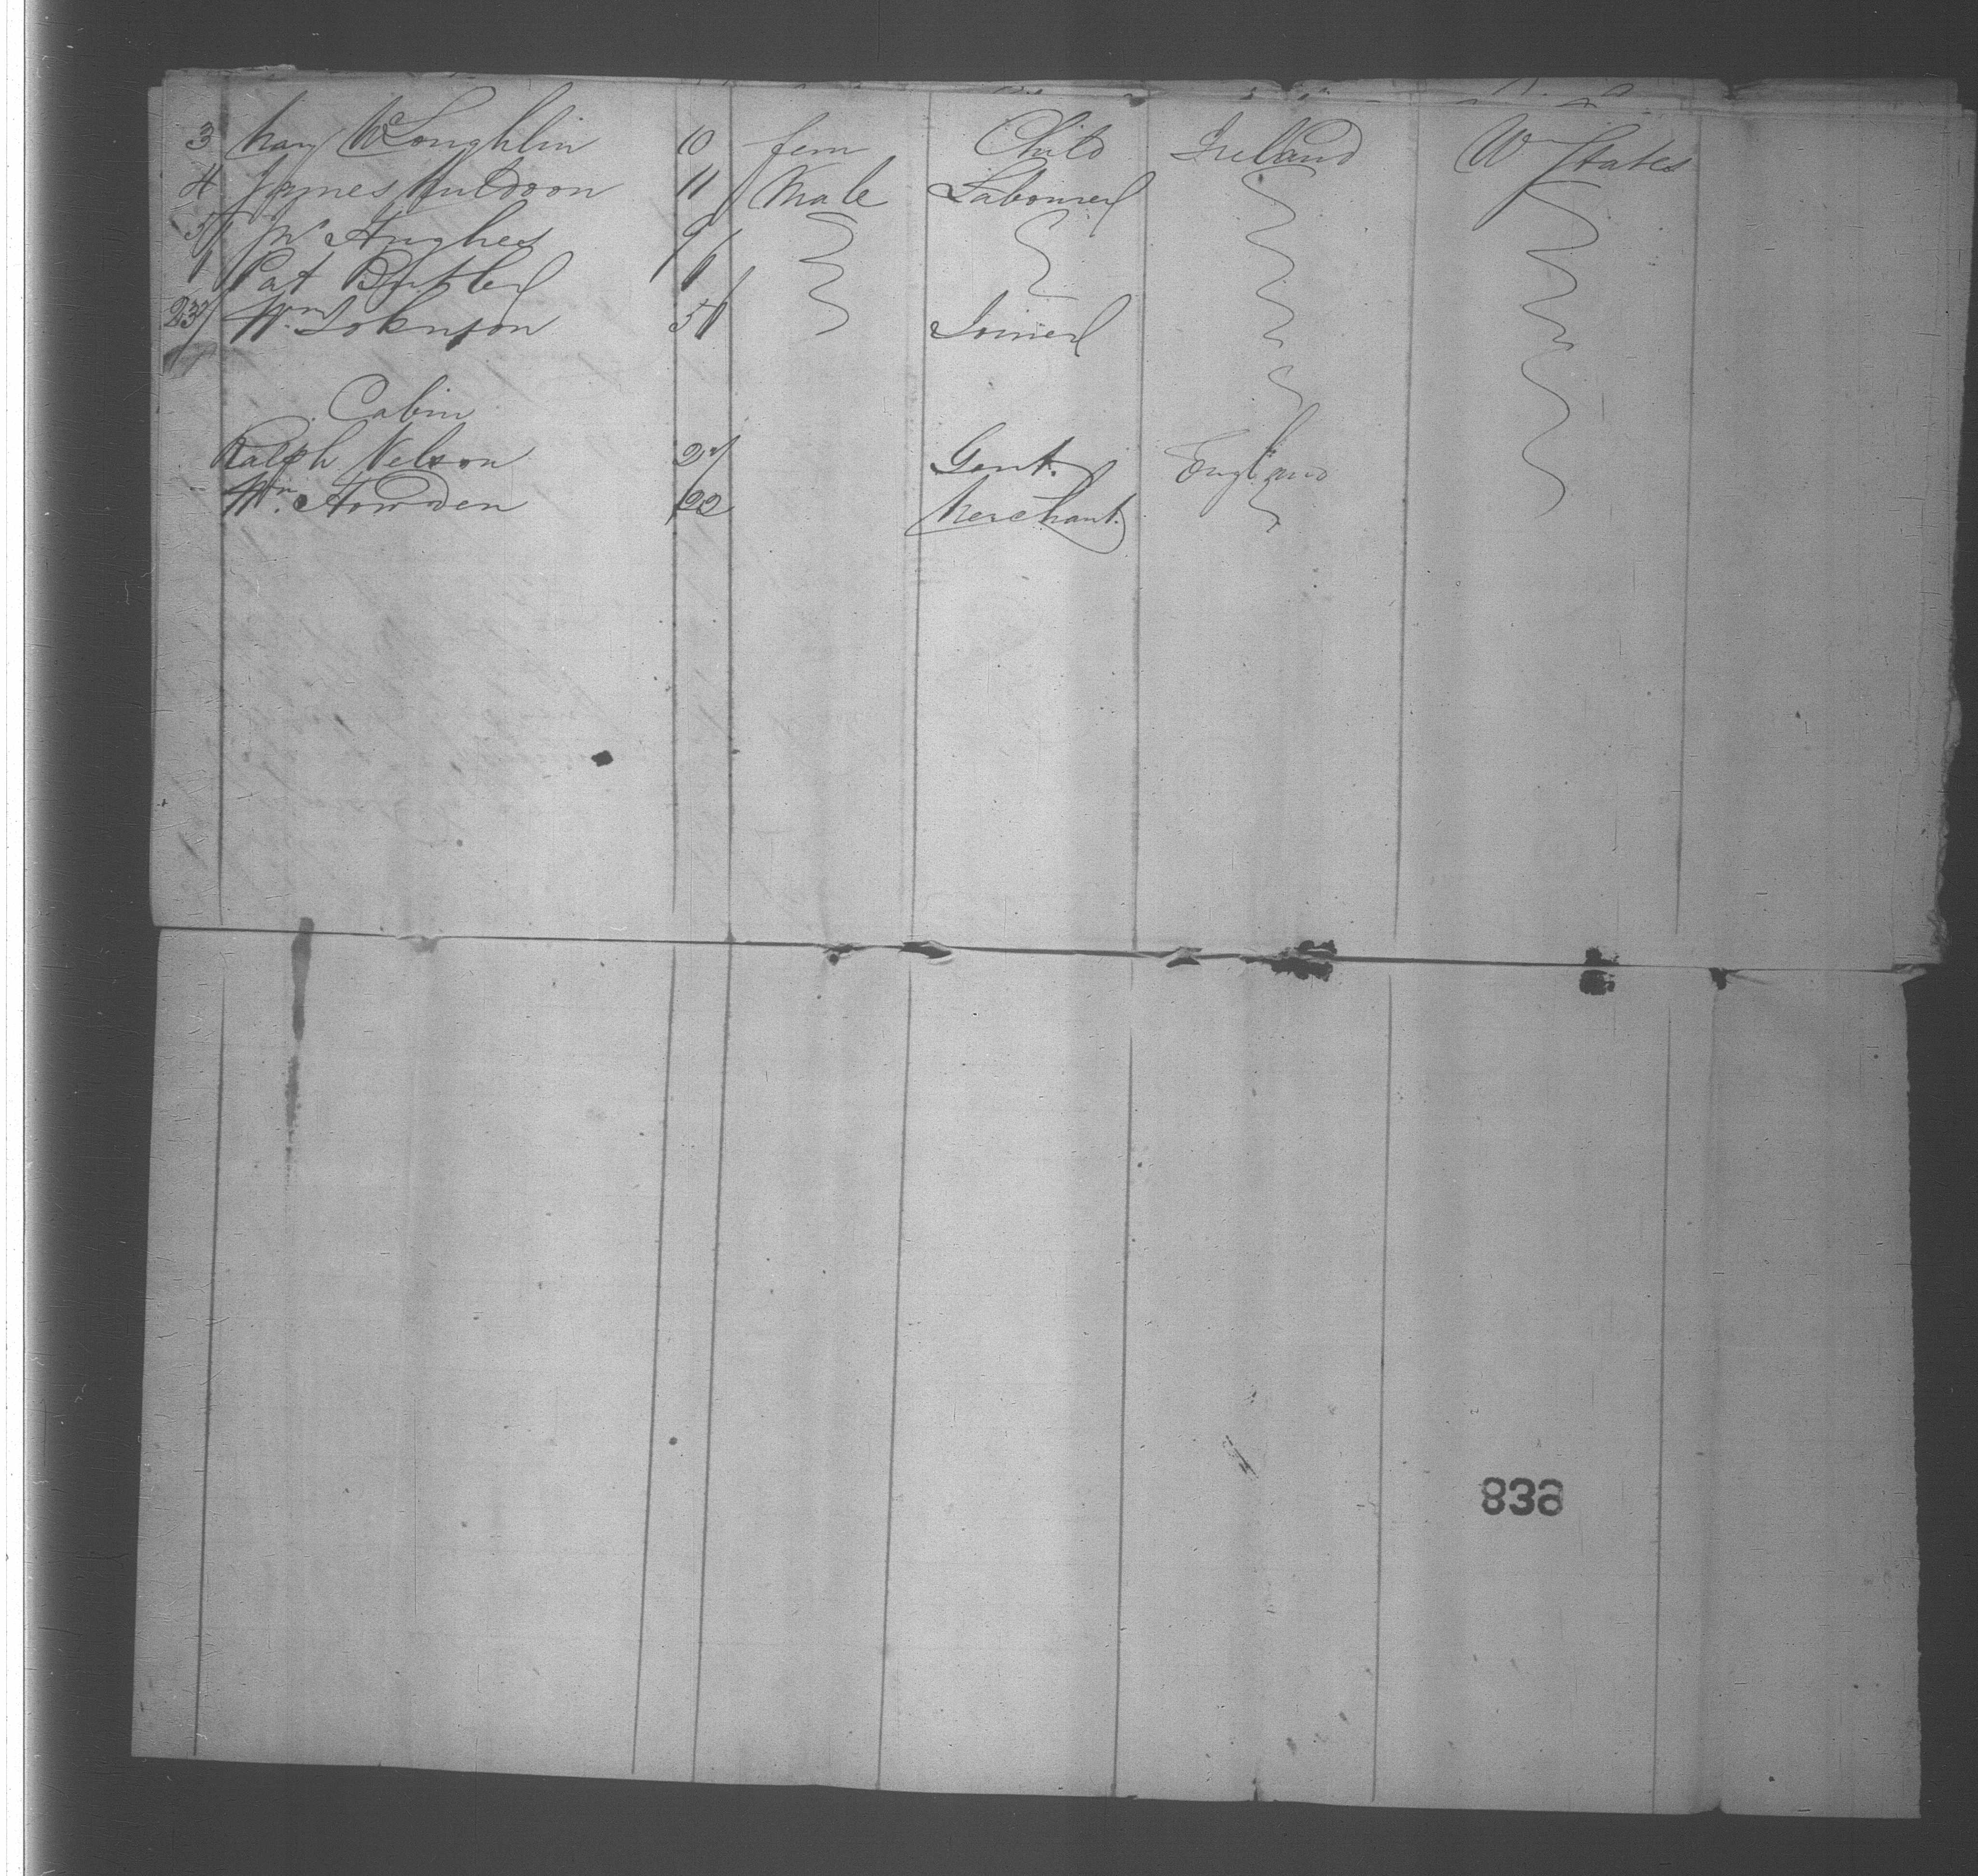 3 Mary McLoughlin 10 fem Child Ireland Un States
4 James Muldoon 11 Male Labourer
5 Jno Hughes 9
Pat Butler
23 Wm Johnson Joiner
Cabin
Ralph Nelson Gent. England
Wm. Howden 22 Merchant.
839